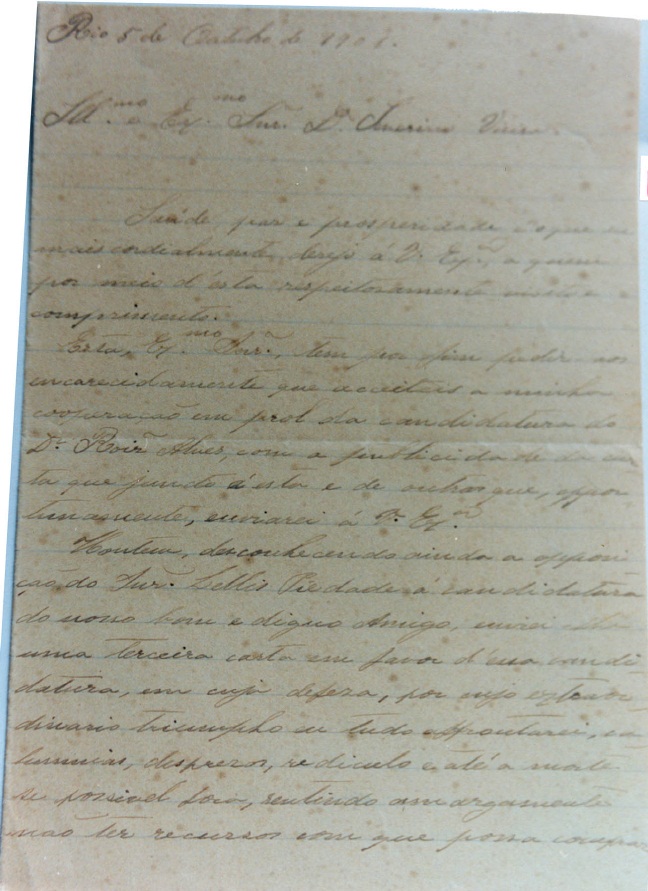 Rio 5 de Outubro de 1901.
Ill.mo e Ex.mo Snr. Dr. Severino Vieira.
Saúde paz e prosperidade é o que
mais cordialmente desejo á V. Exa, a quem
por meio d'esta respeitosamente visito e
comprimento.
Esta, Ex.mo Snr., tem por fim pedir-vos
encarecidamente que acceiteis a minha
cooperação em prol da candidatura do
Dr. Roiz Alves, com a publicidade da car
ta que junto á esta e de outras que, oppor
tunamente, enviarei á V. Exa.
Hontem, desconhecendo ainda a opposi
ção do Snr. Lellis Piedade á candidatura
do nosso bom e digno Amigo, enviei
uma terceira carta em favor d'essa candi
datura, em cuja defeza, por cujo extraor
dinario triumpho eu tudo affrontarei, ca
lumnias, desprezos, rediculo e até a morte
se possivel fôra, sentindo amargamente
não ter recursos com que possa